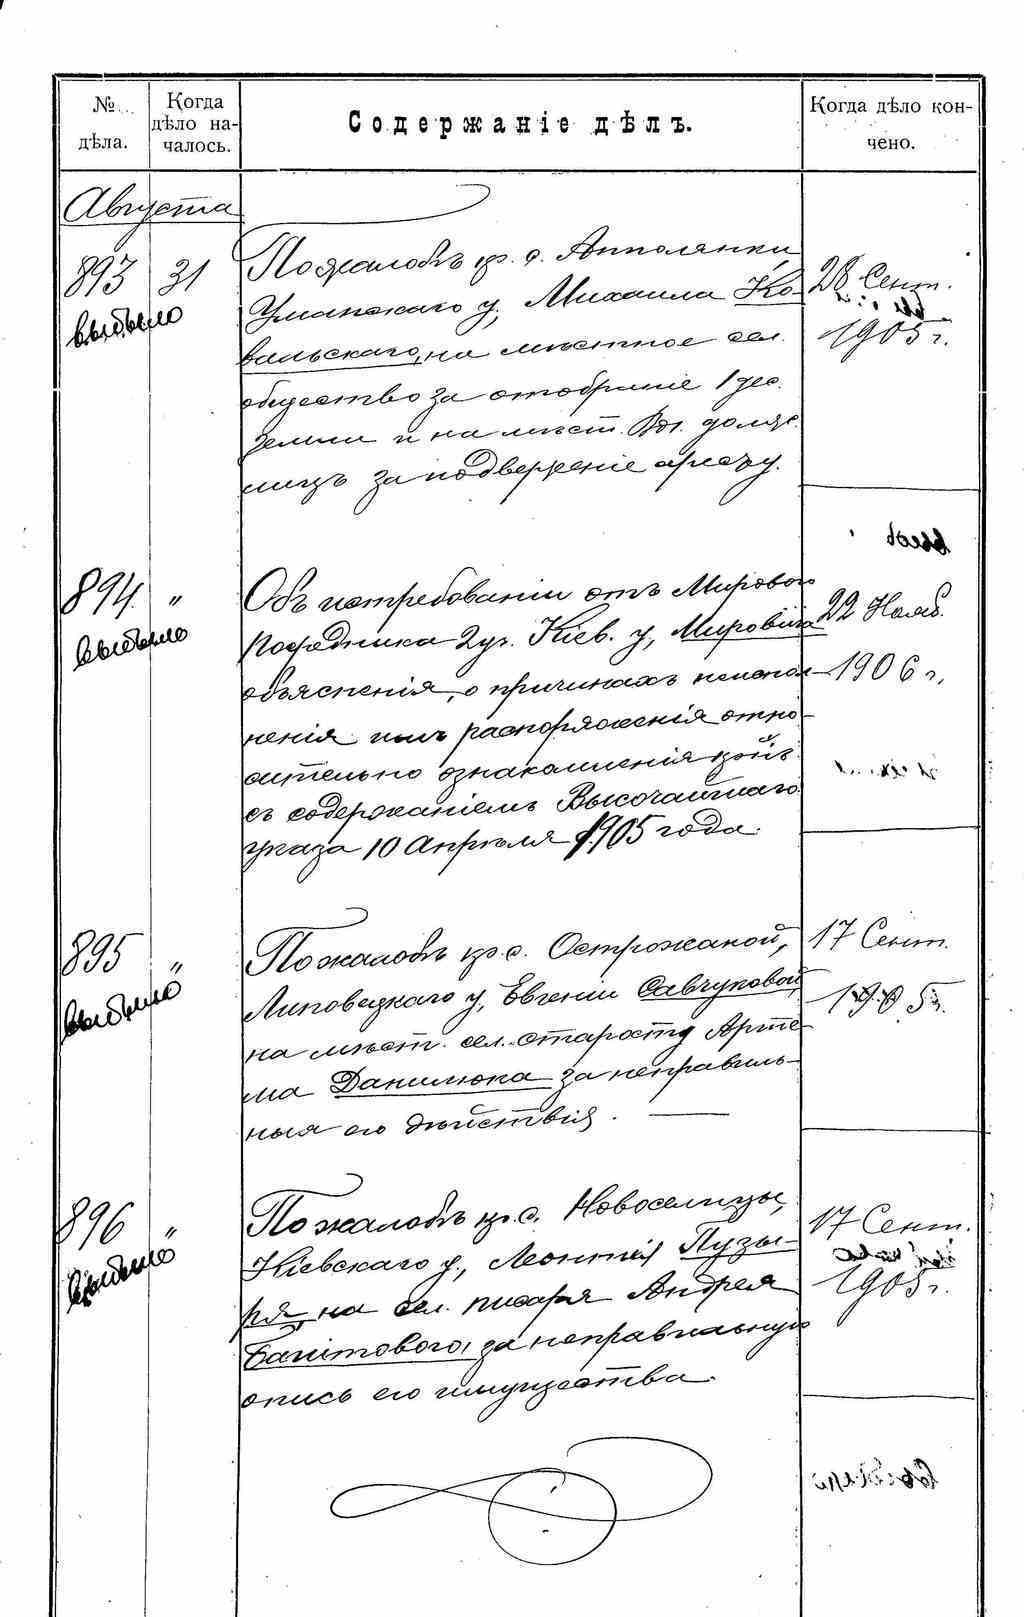 № дѣла.
Когда дѣло на-
чалось.
Содержаніе дѣлъ.
Когда дѣло кон-
чено.
Августа
893 31
выбыло
По жалобѣ кр. с. Антолянки,
Уманскаго у, Михаила Ко-
вальскаго, на мѣстное сел.
общество за отобраніе 1 дес.
земли и на мѣст. Вол. долж.
лицъ за подверженіе аресту.
28 Сент.
1905 г.
894 "
выбыло
Объ истребованіи отъ Мирового
Посредника 2 уч. Кіев. у, Мировича
объясненія, о причинахъ неиспол-
ненія имъ распоряженія отно-
сительно ознакомленія
съ содержаніемъ Высочайшаго
указа 10 Апрѣля 1905 года.
22 Нояб.
1906 г.
895 "
выбыло
По жалобѣ кр. с. Острожаной,
Липовецкаго у, Евгеніи Савчуковой,
на мѣст. сел. старосту Арте-
ма Данилюка за неправиль-
ныя его дѣйствія.
17 Сент.
1905 г.
896 "
выбыло
По жалобѣ кр. с. Новоселицы,
Кіевскаго у, Леонтія Пузы-
ря, на сел. писаря Андрея
за неправильную
опись его имущества.
17 Сент.
1905 г.